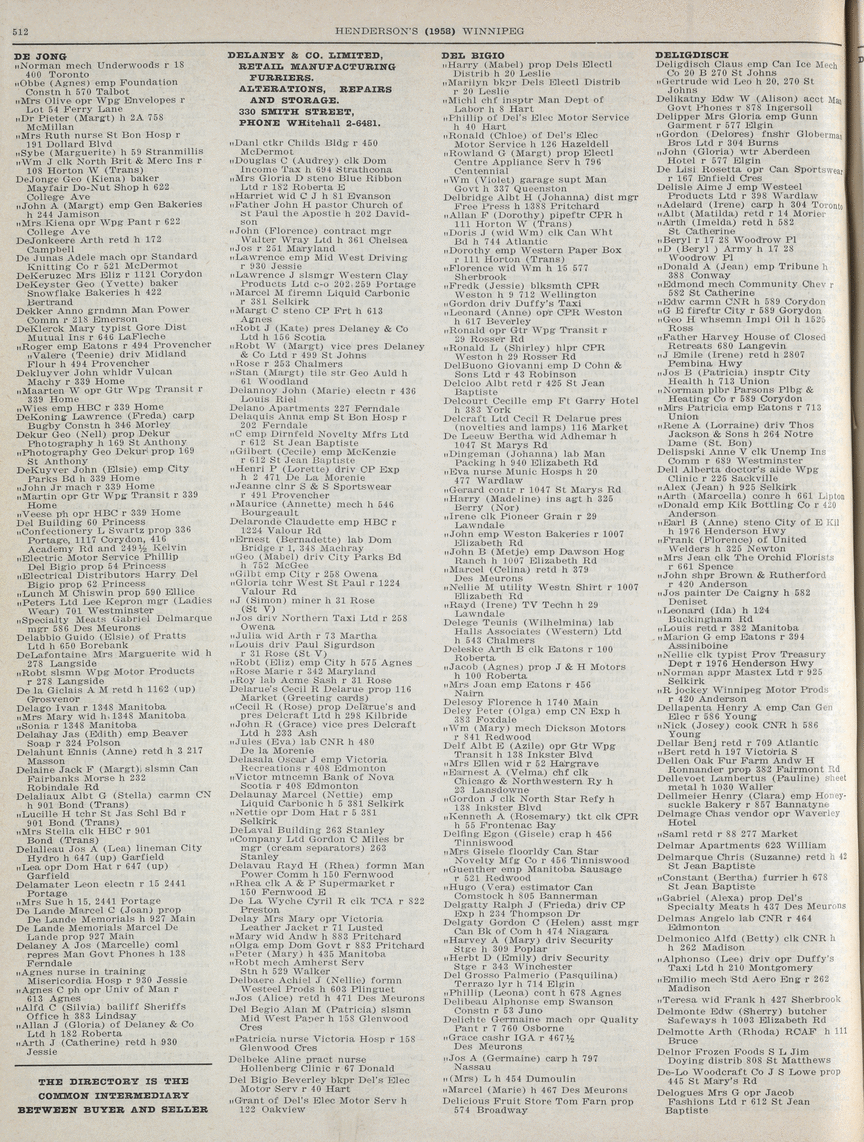 512
HENDERSON'S (1958) WINNIPEG
DE JONG
"Norman mech Underwoods r 18
400 Toronto
"Obbe (Agnes) emp Foundation
Constn h 570 Talbot
"Mrs Olive opr Wpg Envelopes r
Lot 54 Ferry Lane
"Dr Pieter (Margt) h 2A 758
McMillan
"Mrs Ruth nurse St Bon Hosp r
191 Dollard Blvd
"Sybe (Marguerite) h 59 Stranmillis
"Wm J clk North Brit & Merc Ins r
108 Horton W (Trans)
DeJonge Geo (Kiena) baker
Mayfair Do-Nut Shop h 622
College Ave
"John A (Margt) emp Gen Bakeries
h 244 Jamison
"Mrs Kiena opr Wpg Pant r 622
College Ave
DeJonkeere Arth retd h 172
Campbell
De Junas Adele mach opr Standard
Knitting Co r 521 McDermot
DeKeruzec Mrs Eliz r 1121 Corydon
DeKeyster Geo (Yvette) baker
Snowflake Bakeries h 422
Bertrand
Dekker Anno grndmn Man Power
Comm r 218 Emerson
DeKlerck Mary typist Gore Dist
Mutual Ins r 646 LaFleche
"Roger emp Eatons r 494 Provencher
"Valere (Teenie) driv Midland
Flour h 494 Provencher
Dekluyver John whldr Vulcan
Machy r 339 Home
"Maarten W opr Gtr Wpg Transit r
339 Home
"Wies emp HBC r 339 Home
DeKoning Lawrence (Freda) carp
Bugby Constn h 346 Morley
Dekur Geo (Nell) prop Dekur
Photography h 169 St Anthony
"Photography Geo Dekur prop 169
St Anthony
DeKuyver John (Elsie) emp City
Parks Bd h 339 Home
"John Jr mach r 339 Home
"Martin opr Gtr Wpg Transit r 339
Home
"Veese ph opr HBC r 339 Home
Del Building 60 Princess
"Confectionery L Swartz prop 336
Portage, 1117 Corydon, 416
Academy Rd and 249½ Kelvin
"Electric Motor Service Phillip
Del Bigio prop 54 Princess
"Electrical Distributors Harry Del
Bigio prop 62 Princess
"Lunch M Chiswin prop 590 Ellice
"Peters Ltd Lee Kepron mgr (Ladies
Wear) 701 Westminster
"Specialty Meats Gabriel Delmarque
mgr 586 Des Meurons
Delabbio Guido (Elsie) of Pratts
Ltd h 650 Borebank
DeLafontaine Mrs Marguerite wid h
278 Langside
"Robt slsmn Wpg Motor Products
r 278 Langside
De la Giclais A M retd h 1162 (up)
Grosvenor
Delago Ivan r 1348 Manitoba
"Mrs Mary wid h 1348 Manitoba
"Sonia r 1348 Manitoba
Delahay Jas (Edith) emp Beaver
Soap r 324 Polson
Delahunt Ennis (Anne) retd h 3 217
Masson
Delaine Jack F (Margt) slsmn Can
Fairbanks Morse h 232
Robindale Rd
Delaliaux Albt G (Stella) carmn CN
h 901 Bond (Trans)
"Lucille H tchr St Jas Schl Bd r
901 Bond (Trans)
"Mrs Stella clk HBC r 901
Bond (Trans)
Delalleau Jos A (Lea) lineman City
Hydro h 647 (up) Garfield
"Lea opr Dom Hat r 647 (up)
Garfield
Delamater Leon electn r 15 2441
Portage
"Mrs Sue h 15, 2441 Portage
De Lande Marcel C (Joan) prop
De Lande Memorials h 927 Main
De Lande Memorials Marcel De
Lande prop 927 Main
Delaney A Jos (Marcelle) coml
repres Man Govt Phones h 138
Ferndale
"Agnes nurse in training
Misericordia Hosp r 930 Jessie
"Agnes C ph opr Univ of Man r
613 Agnes
"Alfd C (Silvia) bailiff Sheriffs
Office h 383 Lindsay
"Allan J (Gloria) of Delaney & Co
Ltd h 182 Roberta
"Arth J (Catherine) retd h 930
Jessie
THE DIRECTORY IS THE
COMMON INTERMEDIARY
BETWEEN BUYER AND SELLER
DELANEY & CO. LIMITED,
RETAIL MANUFACTURING
FURRIERS.
ALTERATIONS, REPAIRS
AND STORAGE.
330 SMITH STREET,
PHONE WHitehall 2-6481.
"Danl ctkr Childs Bldg r 450
McDermot
"Douglas C (Audrey) clk Dom
Income Tax h 694 Strathcona
"Mrs Gloria D steno Blue Ribbon
Ltd r 182 Roberta E
"Harriet wid C J h 81 Evanson
"Father John H pastor Church of
St Paul the Apostle h 202 David-
son
"John (Florence) contract mgr
Walter Wray Ltd h 361 Chelsea
"Jos r 251 Maryland
"Lawrence emp Mid West Driving
r 930 Jessie
"Lawrence J slsmgr Western Clay
Products Ltd c-o 202,259 Portage
"Marcel M firemn Liquid Carbonic
r 381 Selkirk
"Margt C steno CP Frt h 613
Agnes
"Robt J (Kate) pres Delaney & Co
Ltd h 156 Scotia
"Robt W (Margt) vice pres Delaney
& Co Ltd r 499 St Johns
"Rose r 253 Chalmers
"Stan (Margt) tile str Geo Auld h
61 Woodland
Delannoy John (Marie) electn r 436
Louis Riel
Delano Apartments 227 Ferndale
Delaquis Anna emp St Bon Hosp r
202 Ferndale
"C emp Dirnfeld Novelty Mfrs Ltd
r 612 St Jean Baptiste
"Gilbert (Cecile) emp McKenzie
r 612 St Jean Baptiste
"Henri P (Lorette) driv CP Exp
h 2 471 De La Morenie
"Jeanne clnr S & S Sportswear
r 491 Provencher
"Maurice (Annette) mech h 546
Bourgeault
Delaronde Claudette emp HBC r
1224 Valour Rd
"Ernest (Bernadette) lab Dom
Bridge r 1, 348 Machray
"Geo (Mabel) driv City Parks Bd
h 752 McGee
"Gilbt emp City r 258 Owena
"Gloria tchr West St Paul r 1224
Valour Rd
"J (Simon) miner h 31 Rose
(St V)
"Jos driv Northern Taxi Ltd r 258
Owena
"Julia wid Arth r 73 Martha
"Louis driv Paul Sigurdson
r 31 Rose (St V)
"Robt (Eliz) emp City h 575 Agnes
"Rose Marie r 342 Maryland
"Roy lab Acme Sash r 31 Rose
Delarue's Cecil R Delarue prop 116
Market (Greeting cards)
"Cecil R (Rose) prop Delarue's and
pres Delcraft Ltd h 298 Kilbride
"John R (Grace) vice pres Delcraft
Ltd h 233 Ash
"Jules (Eva) lab CNR h 480
De la Morenie
Delasala Oscar J emp Victoria
Recreations r 408 Edmonton
"Victor mtncemn Bank of Nova
Scotia r 408 Edmonton
Delaunay Marcel (Nettie) emp
Liquid Carbonic h 5 381 Selkirk
"Nettie opr Dom Hat r 5 381
Selkirk
DeLaval Building 263 Stanley
"Company Ltd Gordon C Miles br
mgr (cream separators) 263
Stanley
Delavau Rayd H (Rhea) formn Man
Power Comm h 150 Fernwood
"Rhea clk A & P Supermarket r
150 Fernwood E
De La Wyche Cyril R clk TCA r 822
Preston
Delay Mrs Mary opr Victoria
Leather Jacket r 71 Lusted
"Mary wid Andw h 883 Pritchard
"Olga emp Dom Govt r 883 Pritchard
"Peter (Mary) h 435 Manitoba
"Robt mech Amherst Serv
Stn h 529 Walker
Delbaere Achiel J (Nellie) formn
Westeel Prods h 603 Plinguet
"Jos (Alice) retd h 471 Des Meurons
Del Begio Alan M (Patricia) slsmn
Mid West Paper h 158 Glenwood
Cres
"Patricia nurse Victoria Hosp r 158
Glenwood Cres
Delbeke Aline pract nurse
Hollenberg Clinic r 67 Donald
Del Bigio Beverley bkpr Del's Elec
Motor Serv r 40 Hart
"Grant of Del's Elec Motor Serv h
122 Oakview
DEL BIGIO
"Harry (Mabel) prop Dels Electl
Distrib h 20 Leslie
"Marilyn bkpr Dels Electl Distrib
r 20 Leslie
"Michl chf insptr Man Dept of
Labor h 8 Hart
"Phillip of Del's Elec Motor Service
h 40 Hart
"Ronald (Chloe) of Del's Elec
Motor Service h 126 Hazeldell
"Rowland G (Margt) prop Electl
Centre Appliance Serv h 796
Centennial
"Wm (Violet) garage supt Man
Govt h 337 Queenston
Delbridge Albt H (Johanna) dist mgr
Free Press h 1388 Pritchard
"Allan F (Dorothy) pipeftr CPR h
111 Horton W (Trans)
"Doris J (wid Wm) clk Can Wht
Bd h 744 Atlantic
"Dorothy emp Western Paper Box
r 111 Horton (Trans)
"Florence wid Wm h 15 577
Sherbrook
"Fredk (Jessie) blksmth CPR
Weston h 9 712 Wellington
"Gordon driv Duffy's Taxi
"Leonard (Anne) opr CPR Weston
h 617 Beverley
"Ronald opr Gtr Wpg Transit r
29 Rosser Rd
"Ronald L (Shirley) hlpr CPR
Weston h 29 Rosser Rd
DelBuono Giovanni emp D Cohn &
Sons Ltd r 43 Robinson
Delcloo Albt retd r 425 St Jean
Baptiste
Delcourt Cecille emp Ft Garry Hotel
h 383 York
Delcraft Ltd Cecil R Delarue pres
(novelties and lamps) 116 Market
De Leeuw Bertha wid Adhemar h
1047 St Marys Rd
"Dingeman (Johanna) lab Man
Packing h 940 Elizabeth Rd
"Eva nurse Munic Hosps h 20
477 Wardlaw
"Gerard contr r 1047 St Marys Rd
"Harry (Madeline) ins agt h 325
Berry (Nor)
"Irene clk Pioneer Grain r 29
Lawndale
"John emp Weston Bakeries r 1007
Elizabeth Rd
"John B (Metje) emp Dawson Hog
Ranch h 1007 Elizabeth Rd
"Marcel (Celina) retd h 379
Des Meurons
"Nellie M utility Westn Shirt r 1007
Elizabeth Rd
"Rayd (Irene) TV Techn h 29
Lawndale
Delege Teunis (Wilhelmina) lab
Halls Associates (Western) Ltd
h 543 Chalmers
Deleske Arth B clk Eatons r 100
Roberta
"Jacob (Agnes) prop J & H Motors
h 100 Roberta
"Mrs Joan emp Eatons r 456
Nairn
Delesoy Florence h 1740 Main
Deley Peter (Olga) emp CN Exp h
383 Foxdale
"Wm (Mary) mech Dickson Motors
r 841 Redwood
Delf Albt E (Azile) opr Gtr Wpg
Transit h 138 Inkster Blvd
"Mrs Ellen wid r 52 Hargrave
"Earnest A (Velma) chf clk
Chicago & Northwestern Ry h
23 Lansdowne
"Gordon J clk North Star Refy h
138 Inkster Blvd
"Kenneth A (Rosemary) tkt clk CPR
h 55 Frontenac Bay
Delfing Egon (Gisele) crap h 456
Tinniswood
"Mrs Gisele floorldy Can Star
Novelty Mfg Co r 456 Tinniswood
"Guenther emp Manitoba Sausage
r 521 Redwood
"Hugo (Vera) estimator Can
Comstock h 805 Bannerman
Delgatty Ralph J (Frieda) driv CP
Exp h 234 Thompson Dr
Delgaty Gordon C (Helen) asst mgr
Can Bk of Com h 474 Niagara
"Harvey A (Mary) driv Security
Stge h 309 Poplar
"Herbt D (Emily) driv Security
Stge r 343 Winchester
Del Grosso Palmerino (Pasquilina)
Terrazo lyr h 714 Elgin
"Phillip (Leona) cont h 678 Agnes
Delibeau Alphonse emp Swanson
Constn r 53 Juno
Delichte Germaine mach opr Quality
Pant r 7 760 Osborne
"Grace cashr IGA r 467½
Des Meurons
"Jos A (Germaine) carp h 797
Nassau
"(Mrs) L h 454 Dumoulin
"Marcel (Marie) h 467 Des Meurons
Delicious Fruit Store Tom Farn prop
574 Broadway
DELIGDISCH
Deligdisch Claus emp Can Ice Mech
Co 20 B 270 St Johns
"Gertrude wid Leo h 20, 270 St
Johns
Delikatny Edw W (Alison) acct Man
Govt Phones r 878 Ingersoll
Delipper Mrs Gloria emp Gunn
Garment r 577 Elgin
"Gordon (Delores) fnshr Globerman
Bros Ltd r 304 Burns
"John (Gloria) wtr Aberdeen
Hotel r 577 Elgin
De Lisi Rosetta opr Can Sportswear
r 167 Enfield Cres
Delisle Aime J emp Westeel
Products Ltd r 398 Wardlaw
"Adelard (Irene) carp h 304 Toronto
"Albt (Matilda) retd r 14 Morier
"Arth (Imelda) retd h 582
St Catherine
"Beryl r 17 28 Woodrow Pl
"D (Beryl) Army h 17 28
Woodrow Pl
"Donald A (Jean) emp Tribune h
388 Conway
"Edmond mech Community Chev r
582 St Catherine
"Edw carmn CNR h 589 Corydon
"G E fireftr City r 589 Gorydon
"Geo H whsemn Impl Oil h 1525
Ross
"Father Harvey House of Closed
Retreats 680 Langevin
"J Emile (Irene) retd h 2807
Pembina Hwy
"Jos B (Patricia) insptr City
Health h 713 Union
"Norman plbr Parsons Plbg &
Heating Co r 589 Corydon
"Mrs Patricia emp Eatons r 713
Union
"Rene A (Lorraine) driv Thos
Jackson & Sons h 264 Notre
Dame (St. Bon)
Delispski Anne V clk Unemp Ins
Comm r 689 Westminster
Dell Alberta doctor's aide Wpg
Clinic r 225 Sackville
"Alex (Jean) h 925 Selkirk
"Arth (Marcella) conre h 661 Lipton
"Donald emp Kik Bottling Co r 420
Anderson
"Earl B (Anne) steno City of E Kil
h 1976 Henderson Hwy
"Frank (Florence) of United
Welders h 325 Newton
"Mrs Jean clk The Orchid Florists
r 661 Spence
"John shpr Brown & Rutherford
r 420 Anderson
"Jos painter De Caigny h 582
Deniset
"Leonard (Ida) h 124
Buckingham Rd
"Louis retd r 382 Manitoba
"Marion G emp Eatons r 394
Assiniboine
"Nellie clk typist Prov Treasury
Dept r 1976 Henderson Hwy
"Norman appr Mastex Ltd r 925
Selkirk
"R jockey Winnipeg Motor Prods
r 420 Anderson
Dellapenta Henry A emp Can Gen
Elec r 586 Young
"Nick (Josey) cook CNR h 586
Young
Dellar Benj retd r 709 Atlantic
"Bert retd h 197 Victoria S
Dellen Oak Fur Farm Andw H
Ronnander prop 382 Fairmont Rd
Dellevoet Lambertus (Pauline) sheet
metal h 1030 Waller
Dellmeier Henry (Clara) emp Honey-
suckle Bakery r 857 Bannatyne
Delmage Chas vendor opr Waverley
Hotel
"Saml retd r 88 277 Market
Delmar Apartments 623 William
Delmarque Chris (Suzanne) retd h 42
St Jean Baptiste
"Constant (Bertha) furrier h 678
St Jean Baptiste
"Gabriel (Alexa) prop Del's
Specialty Meats h 437 Des Meurons
Delmas Angelo lab CNR r 464
Edmonton
Delmonico Alfd (Betty) clk CNR h
h 262 Madison
"Alphonso (Lee) driv opr Duffy's
Taxi Ltd h 210 Montgomery
"Emilio mech Std Aero Eng r 262
Madison
"Teresa wid Frank h 427 Sherbrook
Delmonte Edw (Sherry) butcher
Safeways h 1003 Elizabeth Rd
Delmotte Arth (Rhoda) RCAF h 111
Bruce
Delnor Frozen Foods S L Jim
Doying distrib 808 St Matthews
De-Lo Woodcraft Co J S Lowe prop
445 St Mary's Rd
Delogues Mrs G opr Jacob
Fashions Ltd r 612 St Jean
Baptiste